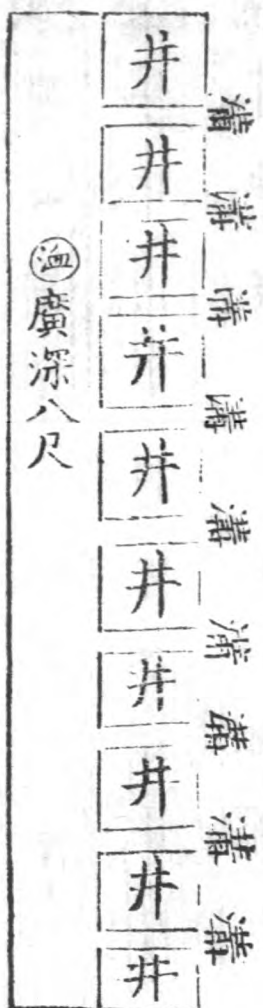 溝溝溝溝溝溝溝溝溝
井井井井井井井井井井
洫廣深八尺